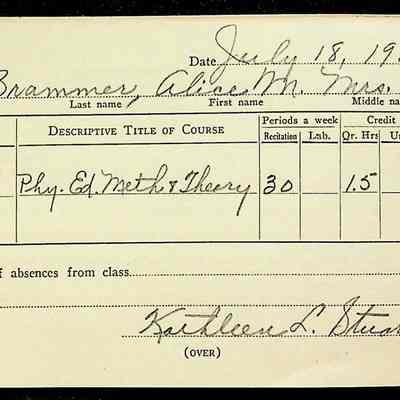 Date July 18, 19
Brammer, Alice M. Mrs.
Last name First name Middle na
DESCRIPTIVE TITLE OF COURSE Periods a week Credit
Recitation Lab. Qr. Hrs U
Phy. Ed. Meth & Theory 30 1.5
f absences from class
Kathleen L. Stua
(OVER)